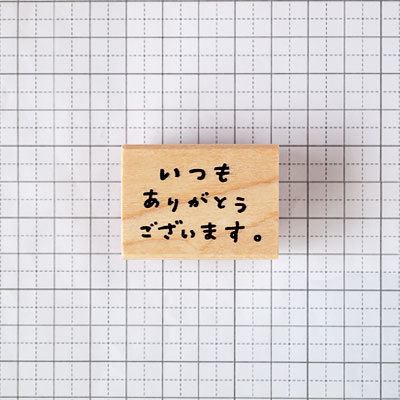 いつも
ありがとう
ございます。